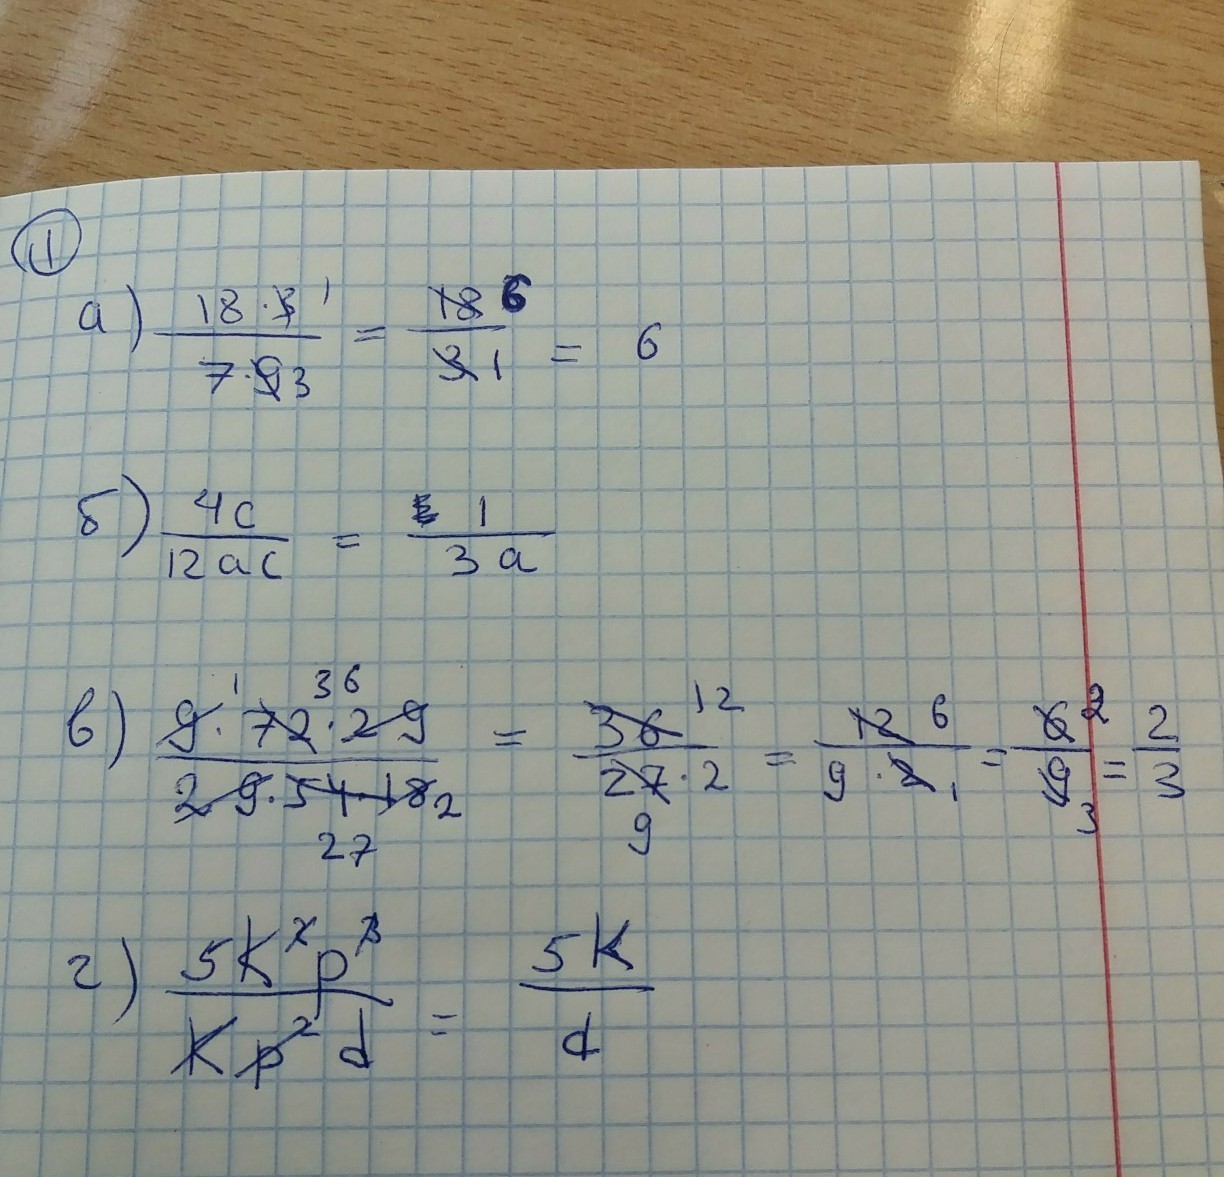 1
а) 18·3 1 / 7·9 3 = 18 6 / 3 1 = 6
б) 4c / 12ac = 1 / 3a
в) 9·1 72·36 29 / 29·54·18 2 27 = 36 12 / 27·2 9 = 12 6 / 9·2 1 = 6 2 / 9 3 = 2 / 3
г) 5K²p³ / Kp²d = 5K / d